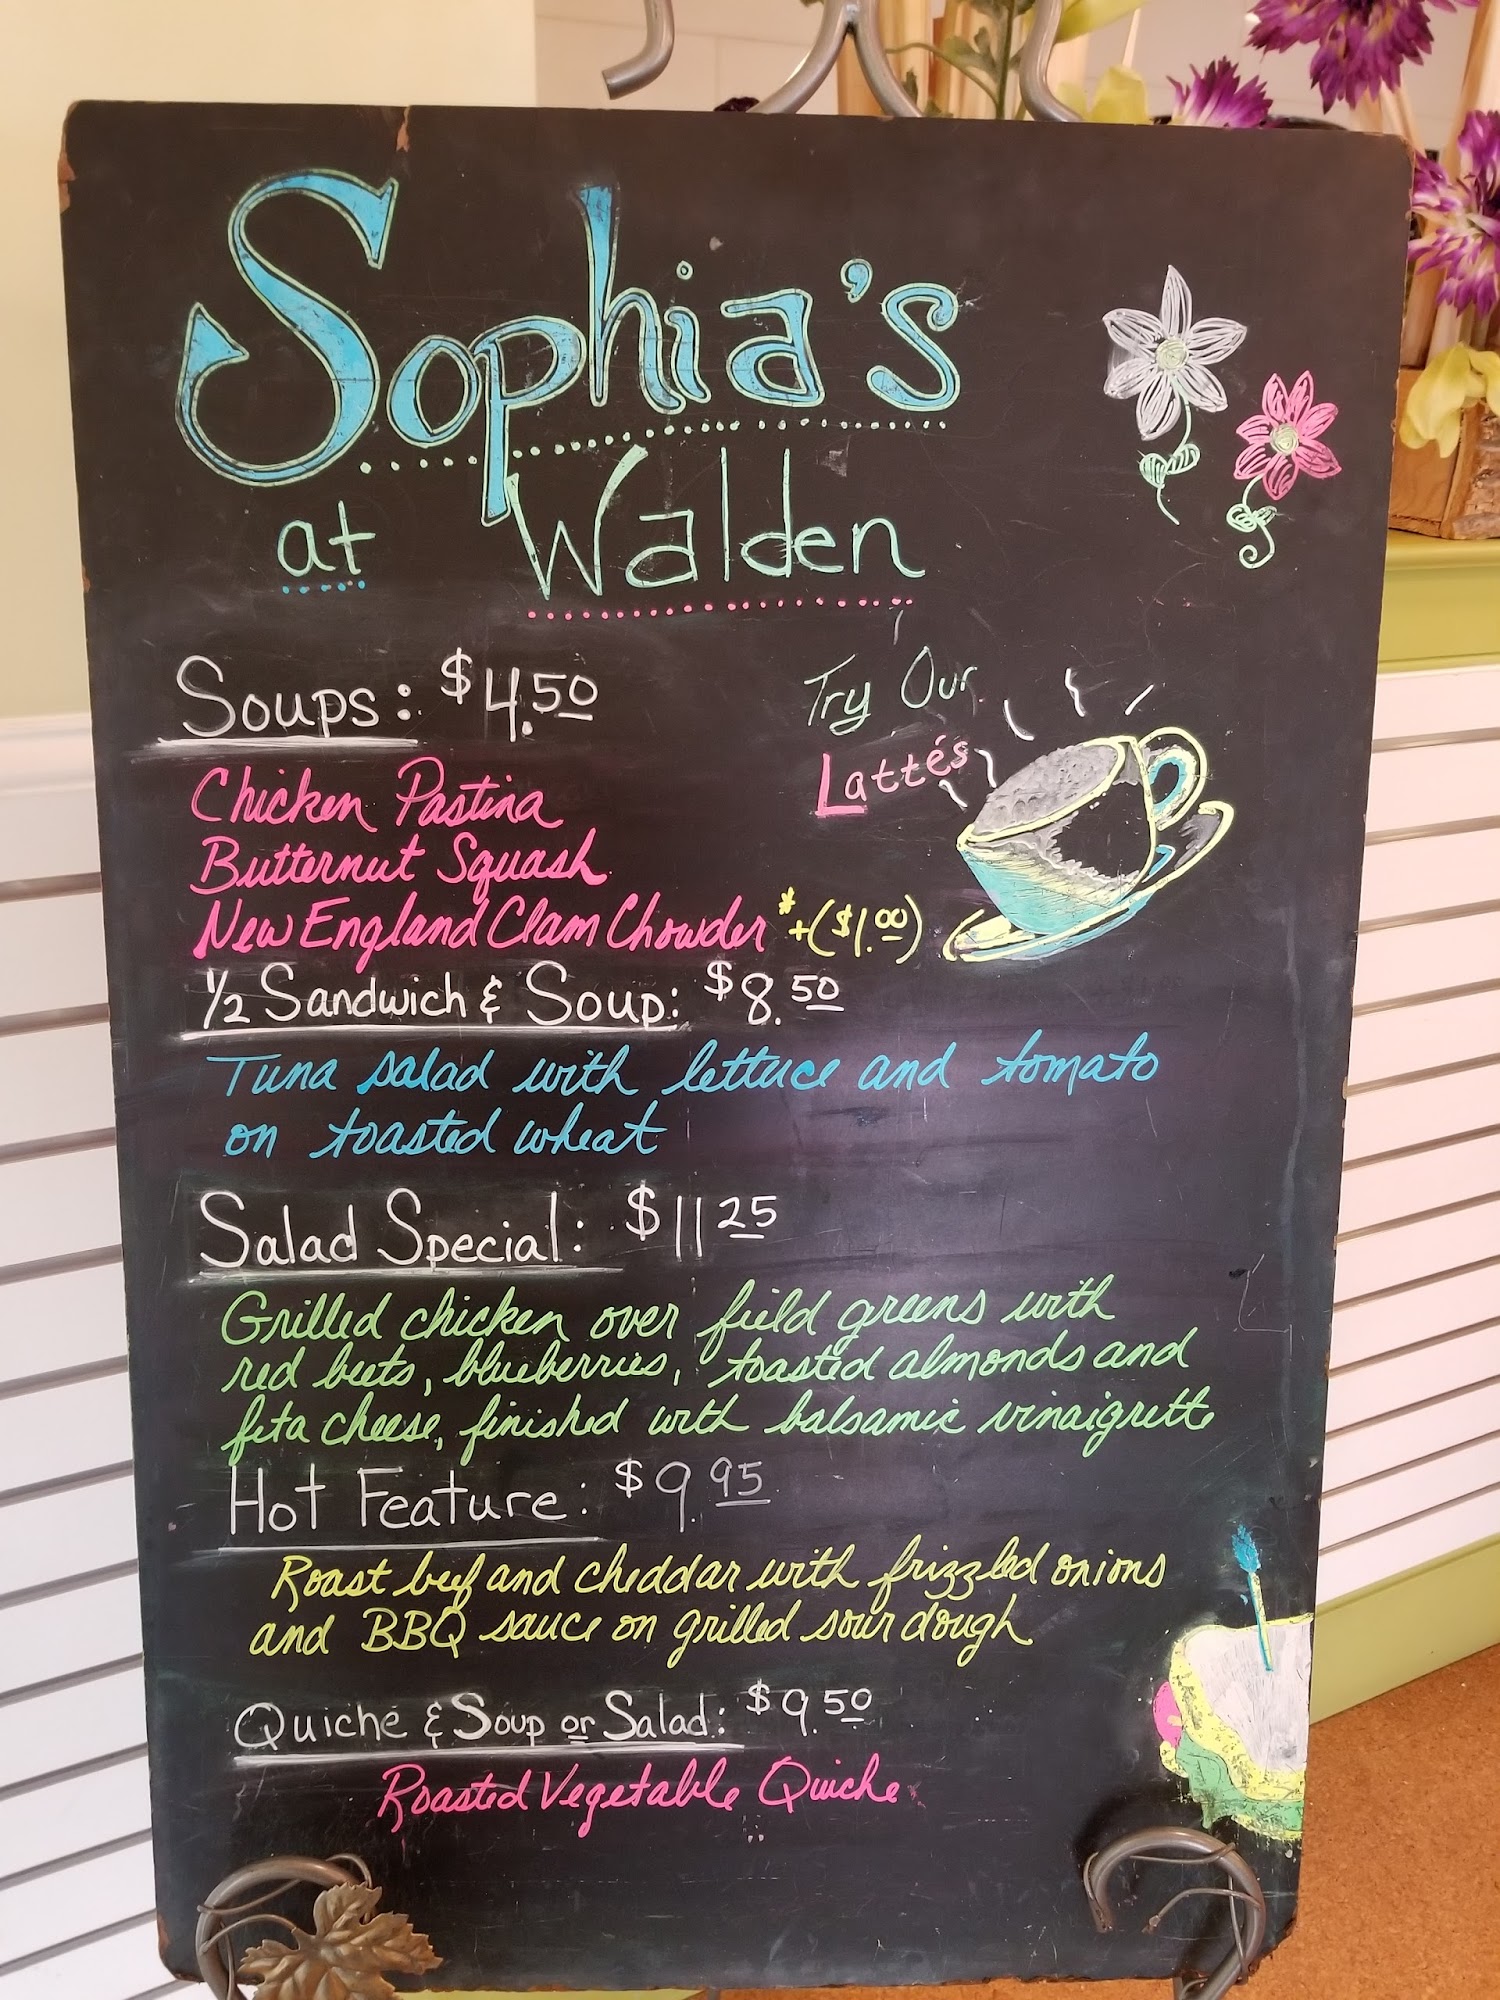 Sophia's
at Walden
Soups: $4.50
Try Our
Lattés
Chicken Pastina
Butternut Squash
New England Clam Chowder *+($1.00)
1/2 Sandwich & Soup: $8.50
Tuna salad with lettuce and tomato
on toasted wheat
Salad Special: $11 25
Grilled chicken over field greens with
red beets, blueberries, toasted almonds and
feta cheese, finished with balsamic vinaigrette
Hot Feature: $9.95
Roast beef and cheddar with frizzled onions
and BBQ sauce on grilled sour dough
Quiche & Soup or Salad: $9.50
Roasted Vegetable Quiche